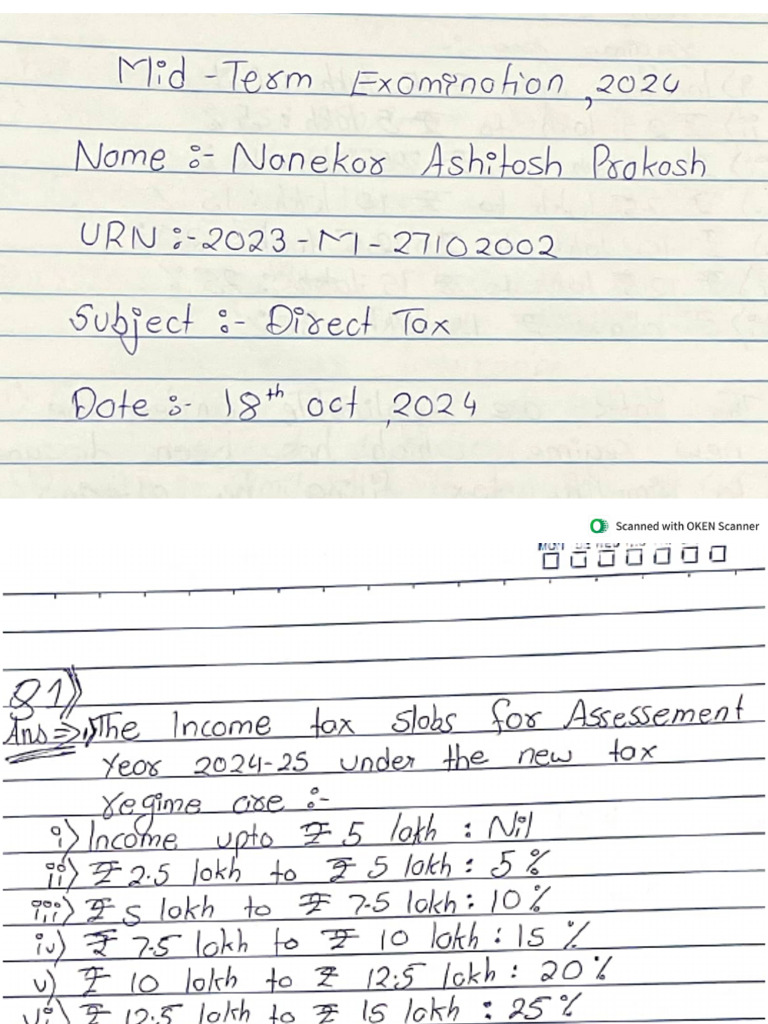 Mid-Term Examination, 2024
Name :- Nanekar Ashitosh Prakash
URN :- 2023-M-27102002
Subject :- Direct Tax
Date :- 18th oct, 2024
Scanned with OKEN Scanner
MON
Q1)
Ans => The Income tax slabs for Assessement
Year 2024-25 under the new tax
regime are :-
i) Income upto ₹ 5 lakh : Nil
ii) ₹ 2.5 lakh to ₹ 5 lakh : 5 %
iii) ₹ 5 lakh to ₹ 7.5 lakh : 10 %
iv) ₹ 7.5 lakh to ₹ 10 lakh : 15 %
v) ₹ 10 lakh to ₹ 12.5 lakh : 20 %
vi) ₹ 12.5 lakh to ₹ 15 lakh : 25 %